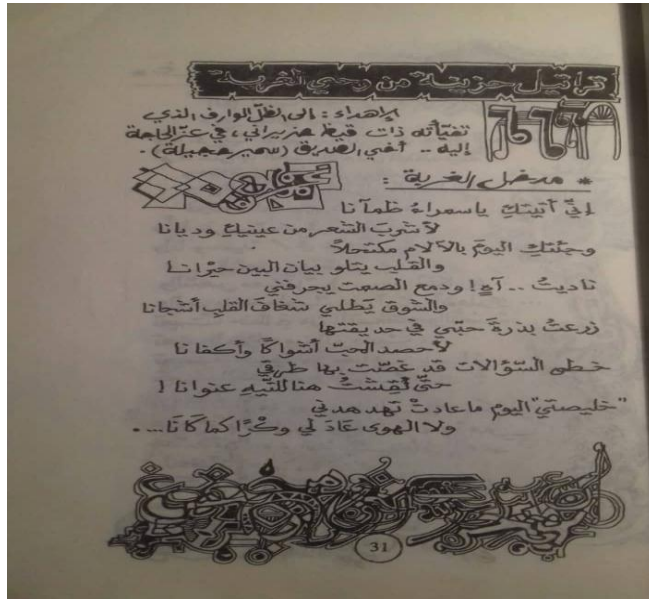 تراتيل حزينة من وحي الغربة
إهداء : إلى الظلّ الوارف الذي
تفيّأته ذات قيظ حزيراني، في عزّ الحاجة
إليه .. أخي الصديق (سمير عجيلة).
* مدخل الغربة :
إنّي أتيتكِ يا سمراءُ ظمآنا
لأشربَ الشعر من عينيكِ وديانا
وجئتكِ اليومَ بالآلامِ مكتحلاً
والقلب يتلو بيان البين حيْرانا
ناديتُ .. آهٍ! ودمع الصمت يجرفني
والشوق يَطلي شغافَ القلبِ أشجانا
زرعتُ بذرةَ حبّي في حديقتها
لأحصد الحبّ أشواكًا وأكفانا
خطم السّؤالات قد غصّت بها طرقي
حتّى نقشتُ هنا للتّيهِ عنوانا !
"خليصتي" اليوم ما عادتْ تهدهدني
ولا الهوى عَادَ لي وكْرًا كما كَانَا...
31